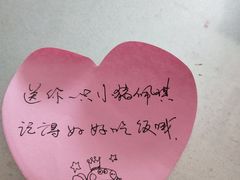 送你一只小猪佩琪
记得好好吃饭哦